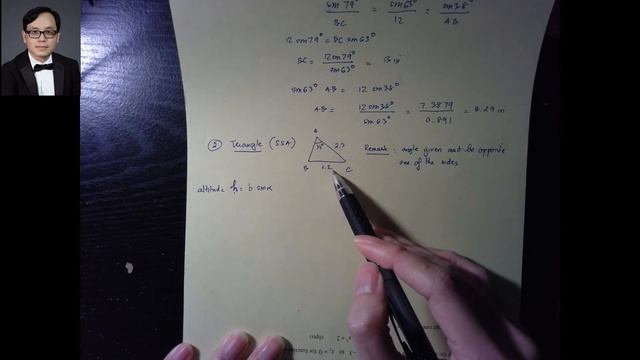 sin 79° = sin 63° = sin 38°
BC 12 AB
12 sin 79° = BC sin 63°
BC = 12 sin 79° = 13 in
sin 63°
sin 63° AB = 12 sin 38°
AB = 12 sin 38° = 7.3879 = 8.29 in
sin 63° 0.891
② Triangle (SSA)
A
2.3
B
1.2
C
Remark: angle given must be opposite
one of the sides
altitude h = b sin α